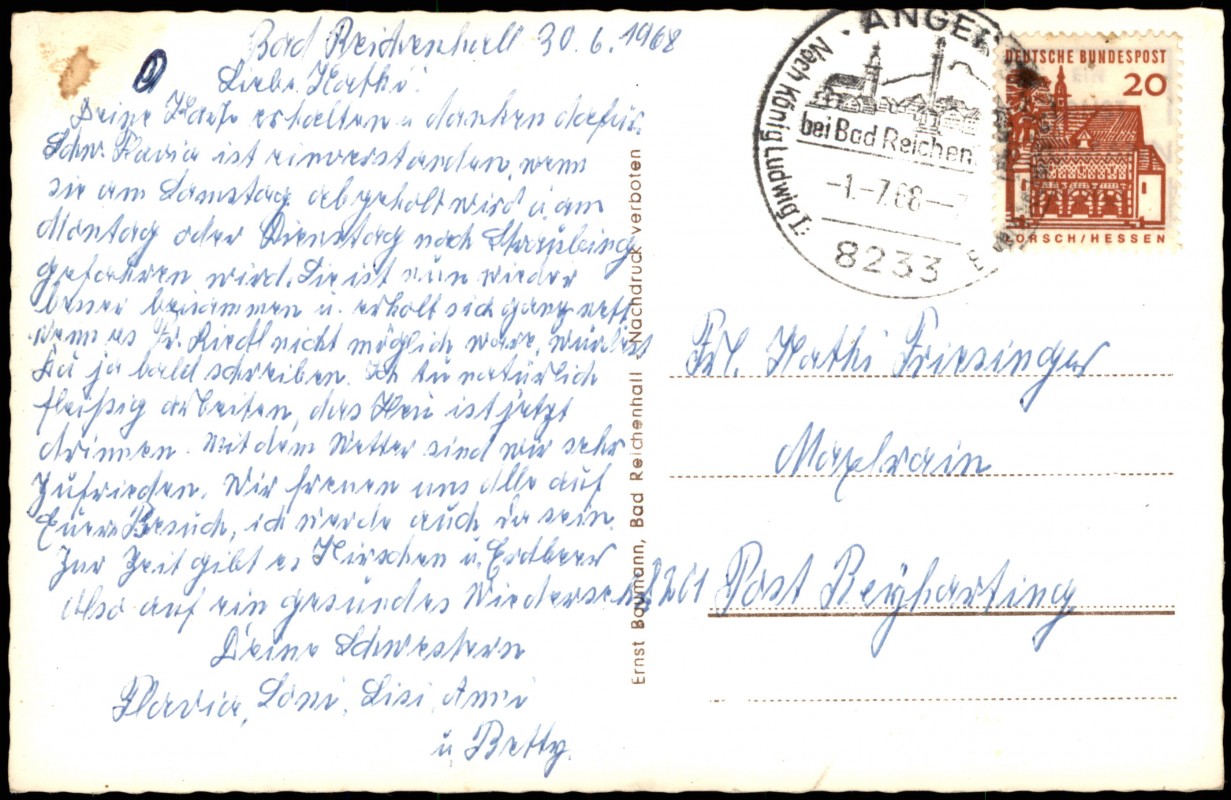 Bad Reichenhall 30.6.1968
Liebe Kathi!
Deine Karte erhalten u. danken dafür.
Schw. Flavia ist einverstanden, wenn
sie am Samstag abgeholt wird u. am
Montag oder Dienstag nach Straubing
gefahren wird. Sie ist nun wieder
beisammen u. erholt sich ganz nett
wenn es Fr. Riedl nicht möglich wäre, würdest
Du ja bald schreiben. Ich tu natürlich
fleißig arbeiten, das Heu ist jetzt
drinnen. Mit dem Wetter sind wir sehr
zufrieden. Wir freuen uns alle auf
Euern Besuch, ich werde auch da sein.
Zur Zeit gibt es Kirschen u. Erdbeer
also auf ein gesundes Wiedersehn
Deine Schwestern
Flavia, Loni, Lisi, Anni
u. Betty.
Ernst Baumann, Bad Reichenhall Nachdruck verboten
ANGER
bei Bad Reichen
Nach König Ludwig I:
-1.-7.68
8233
DEUTSCHE BUNDESPOST
20
LORSCH/HESSEN
Frl. Kathi Friesinger
Maxlrain
8201 Post Beyharting